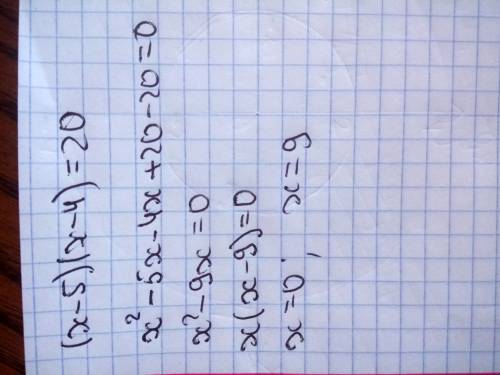 (x-5)(x-4)=20
x²-5x-4x+20-20=0
x²-9x=0
x(x-9)=0
x=0; x=9